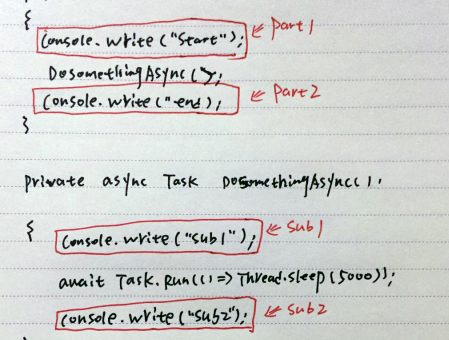 {
Console.write("Start"); ⇐ Part1
DosomethingAsync(");
Console.write("end); ⇐ Part2
}
private async Task DosomethingAsync().
{
Console.write("sub1"); ⇐ sub1
await Task.Run(()=>Thread.sleep(5000));
Console.write("sub2"); ⇐ sub2